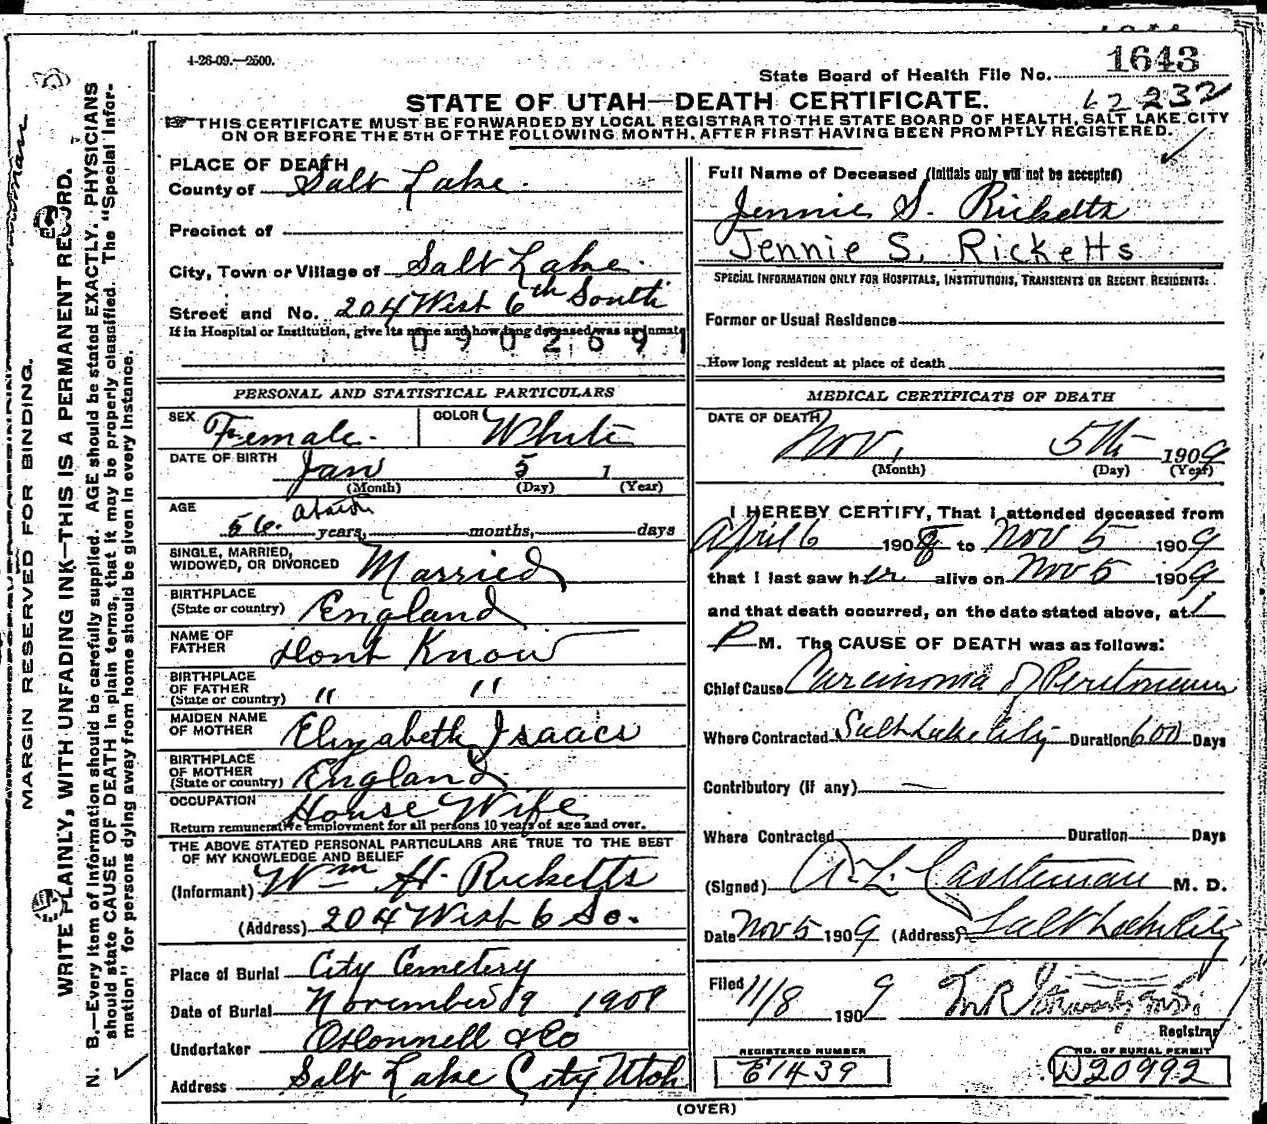 1-26-09.—2500.
State Board of Health File No. 1643
STATE OF UTAH—DEATH CERTIFICATE.
62 232
THIS CERTIFICATE MUST BE FORWARDED BY LOCAL REGISTRAR TO THE STATE BOARD OF HEALTH, SALT LAKE CITY
ON OR BEFORE THE 5TH OF THE FOLLOWING MONTH, AFTER FIRST HAVING BEEN PROMPTLY REGISTERED.
MARGIN RESERVED FOR BINDING.
WRITE PLAINLY, WITH UNFADING INK—THIS IS A PERMANENT RECORD.
N. B.—Every item of information should be carefully supplied. AGE should be stated EXACTLY. PHYSICIANS
should state CAUSE OF DEATH in plain terms, that it may be properly classified. The "Special Infor-
mation" for persons dying away from home should be given in every instance.
PLACE OF DEATH
County of Salt Lake.
Precinct of
City, Town or Village of Salt Lake.
Street and No. 204 West 6th South
If in Hospital or Institution, give its name and how long deceased was an inmate
0902691
PERSONAL AND STATISTICAL PARTICULARS
SEX Female. COLOR White
DATE OF BIRTH Jan 5 1
(Month) (Day) (Year)
AGE 56. about years, months, days
SINGLE, MARRIED,
WIDOWED, OR DIVORCED Married
BIRTHPLACE
(State or country) England
NAME OF
FATHER Dont Know
BIRTHPLACE
OF FATHER
(State or country) " "
MAIDEN NAME
OF MOTHER Elizabeth Isaacs
BIRTHPLACE
OF MOTHER
(State or country) England.
OCCUPATION House Wife
Return remunerative employment for all persons 10 years of age and over.
THE ABOVE STATED PERSONAL PARTICULARS ARE TRUE TO THE BEST
OF MY KNOWLEDGE AND BELIEF
(Informant) Wm H. Ricketts
(Address) 204 West 6 So.
Place of Burial City Cemetery
Date of Burial November 9 1909
Undertaker O'Donnell & Co
Address Salt Lake City Utah
Full Name of Deceased (Initials only will not be accepted)
Jennie S. Ricketts
Jennie S. Ricketts
SPECIAL INFORMATION ONLY FOR HOSPITALS, INSTITUTIONS, TRANSIENTS OR RECENT RESIDENTS:
Former or Usual Residence
How long resident at place of death
MEDICAL CERTIFICATE OF DEATH
DATE OF DEATH Nov. 5th 1909
(Month) (Day) (Year)
I HEREBY CERTIFY, That I attended deceased from
April 6 1908 to Nov 5 1909
that I last saw her alive on Nov 5 1909
and that death occurred, on the date stated above, at 1
P M. The CAUSE OF DEATH was as follows:
Chief Cause Carcinoma of Peritoneum
Where Contracted Salt Lake City Duration 600 Days
Contributory (if any)
Where Contracted Duration Days
(Signed) A. L. Castleman M. D.
Date Nov 5 1909 (Address) Salt Lake City
Filed 11/8 1909
Registrar
REGISTERED NUMBER
E1439
NO. OF BURIAL PERMIT
W20992
(OVER)